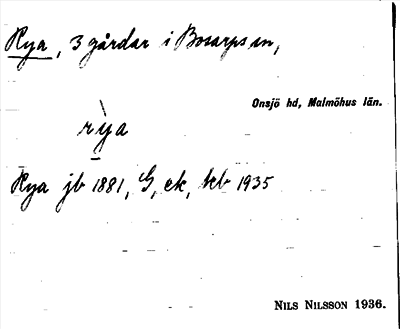 Rya, 3 gårdar i Bosarps sn,
Onsjö hd, Malmöhus län.
rỳa
Rya jb 1881, G, ek, kb 1935
NILS NILSSON 1936.